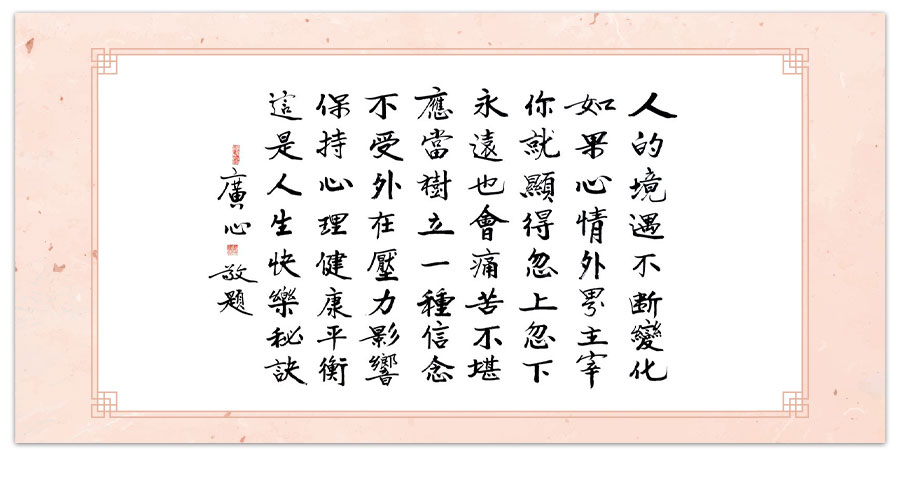 人的境遇不斷變化
如果心情外界主宰
你就顯得忽上忽下
永遠也會痛苦不堪
應當樹立一種信念
不受外在壓力影響
保持心理健康平衡
這是人生快樂秘訣
廣心敬題